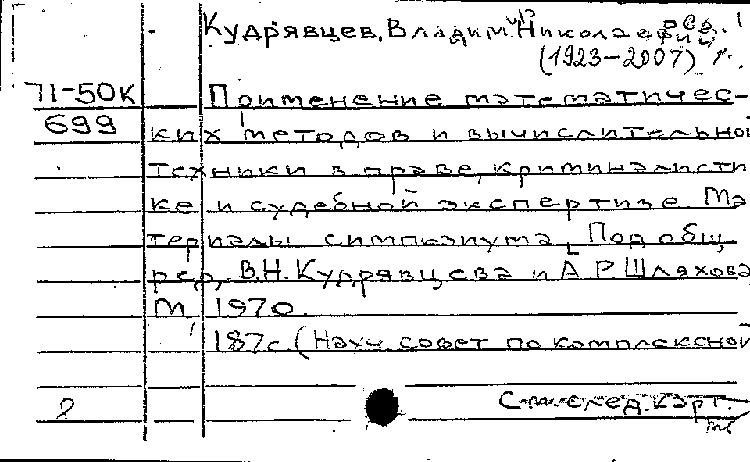 Кудрявцев, Владимир Николаевич ред.
(1923-2007)
71-50к Применение математичес-
699 ких методов и вычислительной
техники в праве, криминалисти
ке и судебной экспертизе. Ма
териалы симпозиума. Под общ.
ред. В.Н. Кудрявцева и А.Р. Шляхова
М, 1970.
187с. (Науч. совет по комплексной
См. след. карт.